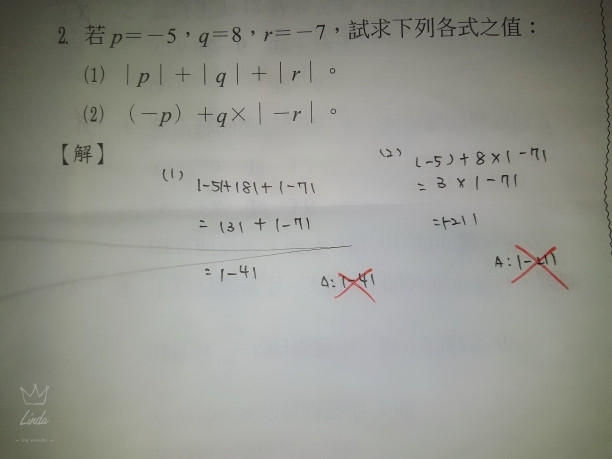 2. 若p=-5，q=8，r=-7，試求下列各式之值：
(1) |p|+|q|+|r|。
(2) (-p)+q×|-r|。
【解】
(1)
|-5|+|8|+|-7|
= |3| + |-7|
= |-4|
A: |-4|
(2)
(-5)+8×|-7|
= 3×|-7|
=|-21|
A: |-21|
Linda